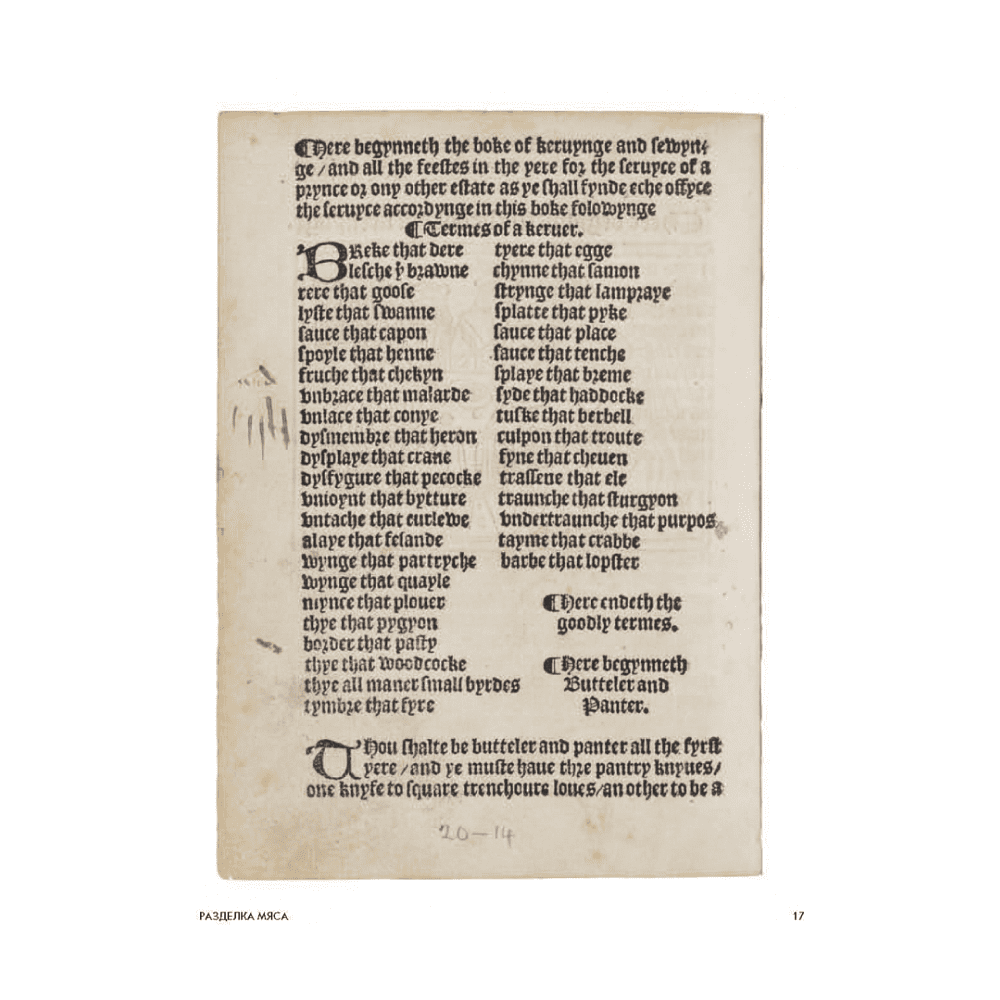 ¶Here begynneth the boke of keruynge and sewyn-
ge / and all the feestes in the yere for the seruyce of a
prynce or ony other estate as ye shall fynde eche offyce
the seruyce accordynge in this boke folowynge
¶Termes of a keruer.
BReke that dere
lesche yͤ brawne
rere that goose
lyfte that swanne
sauce that capon
spoyle that henne
fruche that chekyn
vnbrace that malarde
vnlace that conye
dysmembre that heron
dysplaye that crane
dysfygure that pecocke
vnioynt that bytture
vntache that curlewe
alaye that fesande
wynge that partryche
wynge that quayle
mynce that plouer
thye that pygyon
border that pasty
thye that woodcocke
thye all maner small byrdes
tymbre that fyre
tyere that egge
chynne that samon
strynge that lampraye
splatte that pyke
sauce that place
sauce that tenche
splaye that breme
syde that haddocke
tuske that berbell
culpon that troute
fyne that cheuen
trassene that ele
traunche that sturgyon
vndertraunche that purpos
tayme that crabbe
barbe that lopster
¶Here endeth the
goodly termes.
¶Here begynneth
Butteler and
Panter.
THou shalte be butteler and panter all the fyrst
yere / and ye muste haue thre pantry knyues /
one knyfe to square trenchoure loues / an other to be a
20-14
РАЗДЕЛКА МЯСА
17